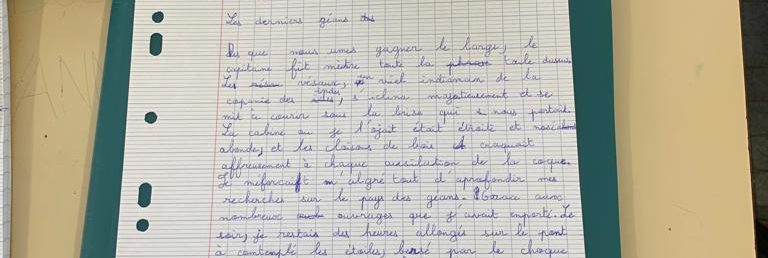 Les derniers géans
Dés que nous umes gagner le large, le
capitaine fit mettre toute la toile dessus.
Les vésaux, un vieil indianan de la
copanie des indes, s'clina majestieusement et se
mit à courir sous la brise qui nous portait.
La cabine ou je l'ojait était étroite et
abonde, et les cloisons de bois craquait
affreusement à chaque ossilation de la coque.
Je méforcait m'algré tout d'aprofondir mes
recherches sur le pays des géans. Grace aux
nombreux ouvrages que j'avait enporté. Le
soir, je restais des heures allongés sur le pont
à contemplé les étoiles, bersé par le choque